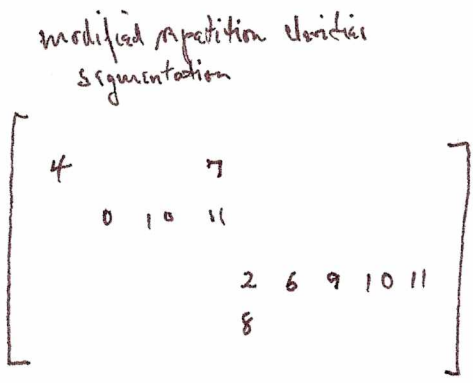 modified repetition clarifies
segmentation
4 7
0 10 11
2 6 9 10 11
8